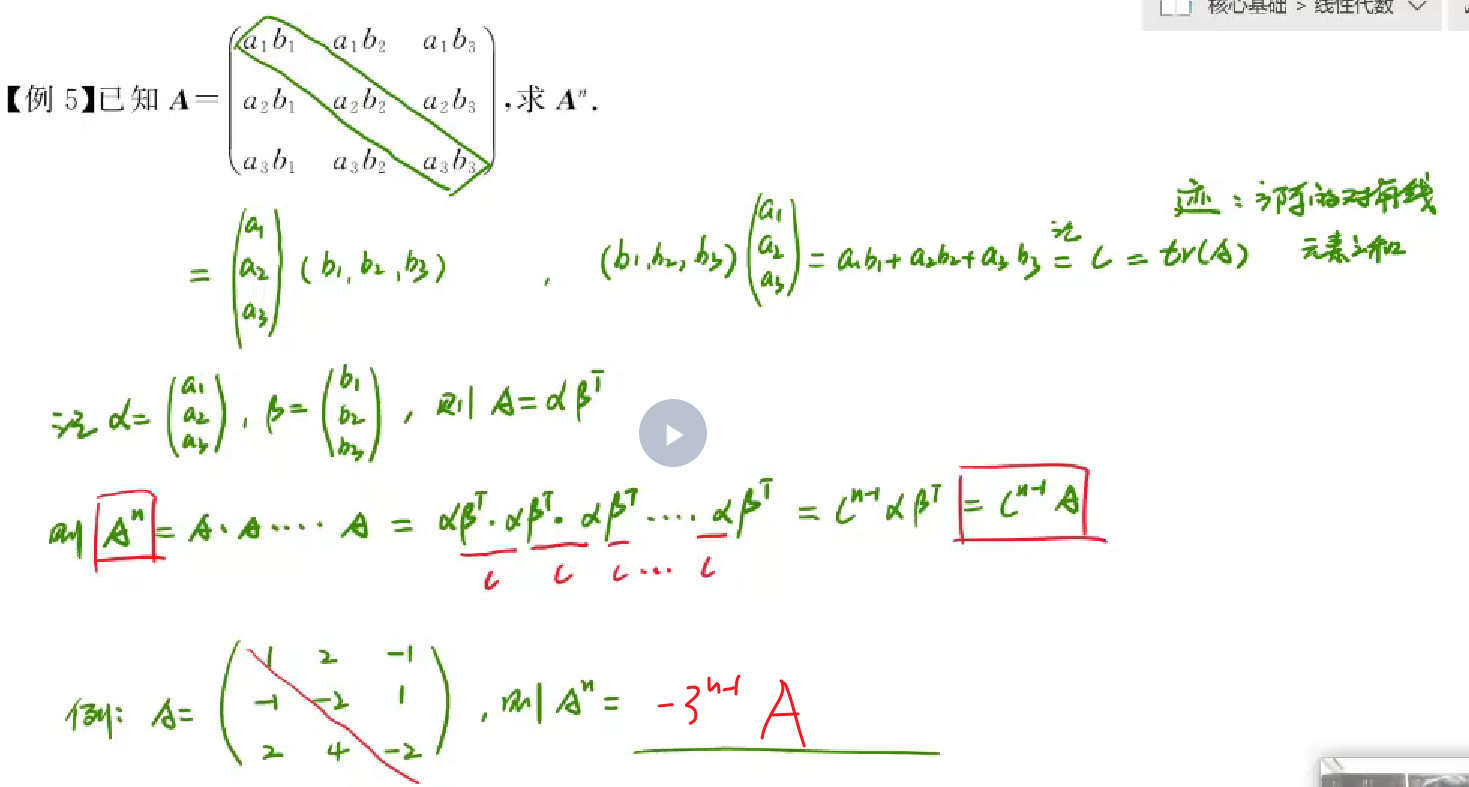 核心基础 > 线性代数
【例 5】已知 A = ( a₁b₁ a₁b₂ a₁b₃
a₂b₁ a₂b₂ a₂b₃
a₃b₁ a₃b₂ a₃b₃ ) ,求 Aⁿ.
= ( a₁ a₂ a₃ ) ( b₁, b₂, b₃ ) , (b₁, b₂, b₃) ( a₁ a₂ a₃ ) = a₁b₁ + a₂b₂ + a₃b₃ 记= C = tr(A)
迹：方阵的对角线
元素之和
记 α = ( a₁ a₂ a₃ ) , β = ( b₁ b₂ b₃ ) , 则 A = αβᵀ
则 Aⁿ = A·A····A = αβᵀ·αβᵀ·αβᵀ····αβᵀ = Cⁿ⁻¹αβᵀ = Cⁿ⁻¹A
C C C ... C
例: A = ( 1 2 -1
-1 -2 1
2 4 -2 ) , 则 Aⁿ = -3ⁿ⁻¹ A